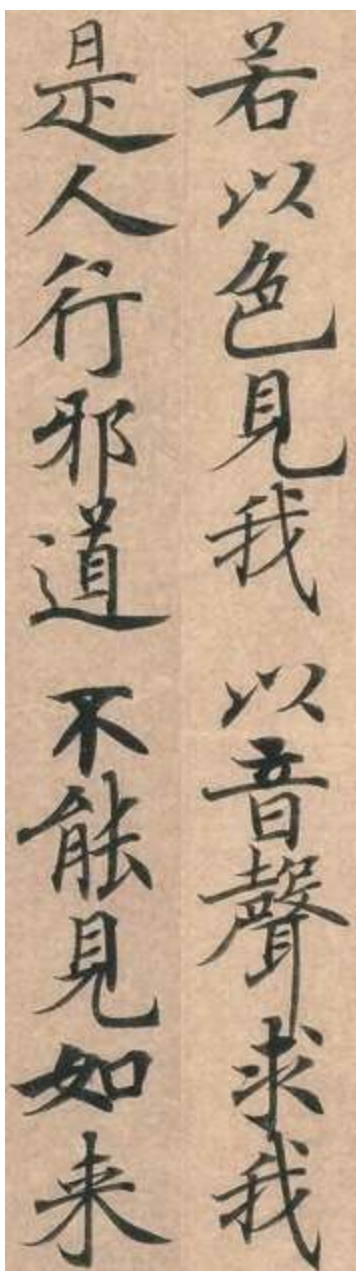 若以色見我 以音聲求我
是人行邪道 不能見如来